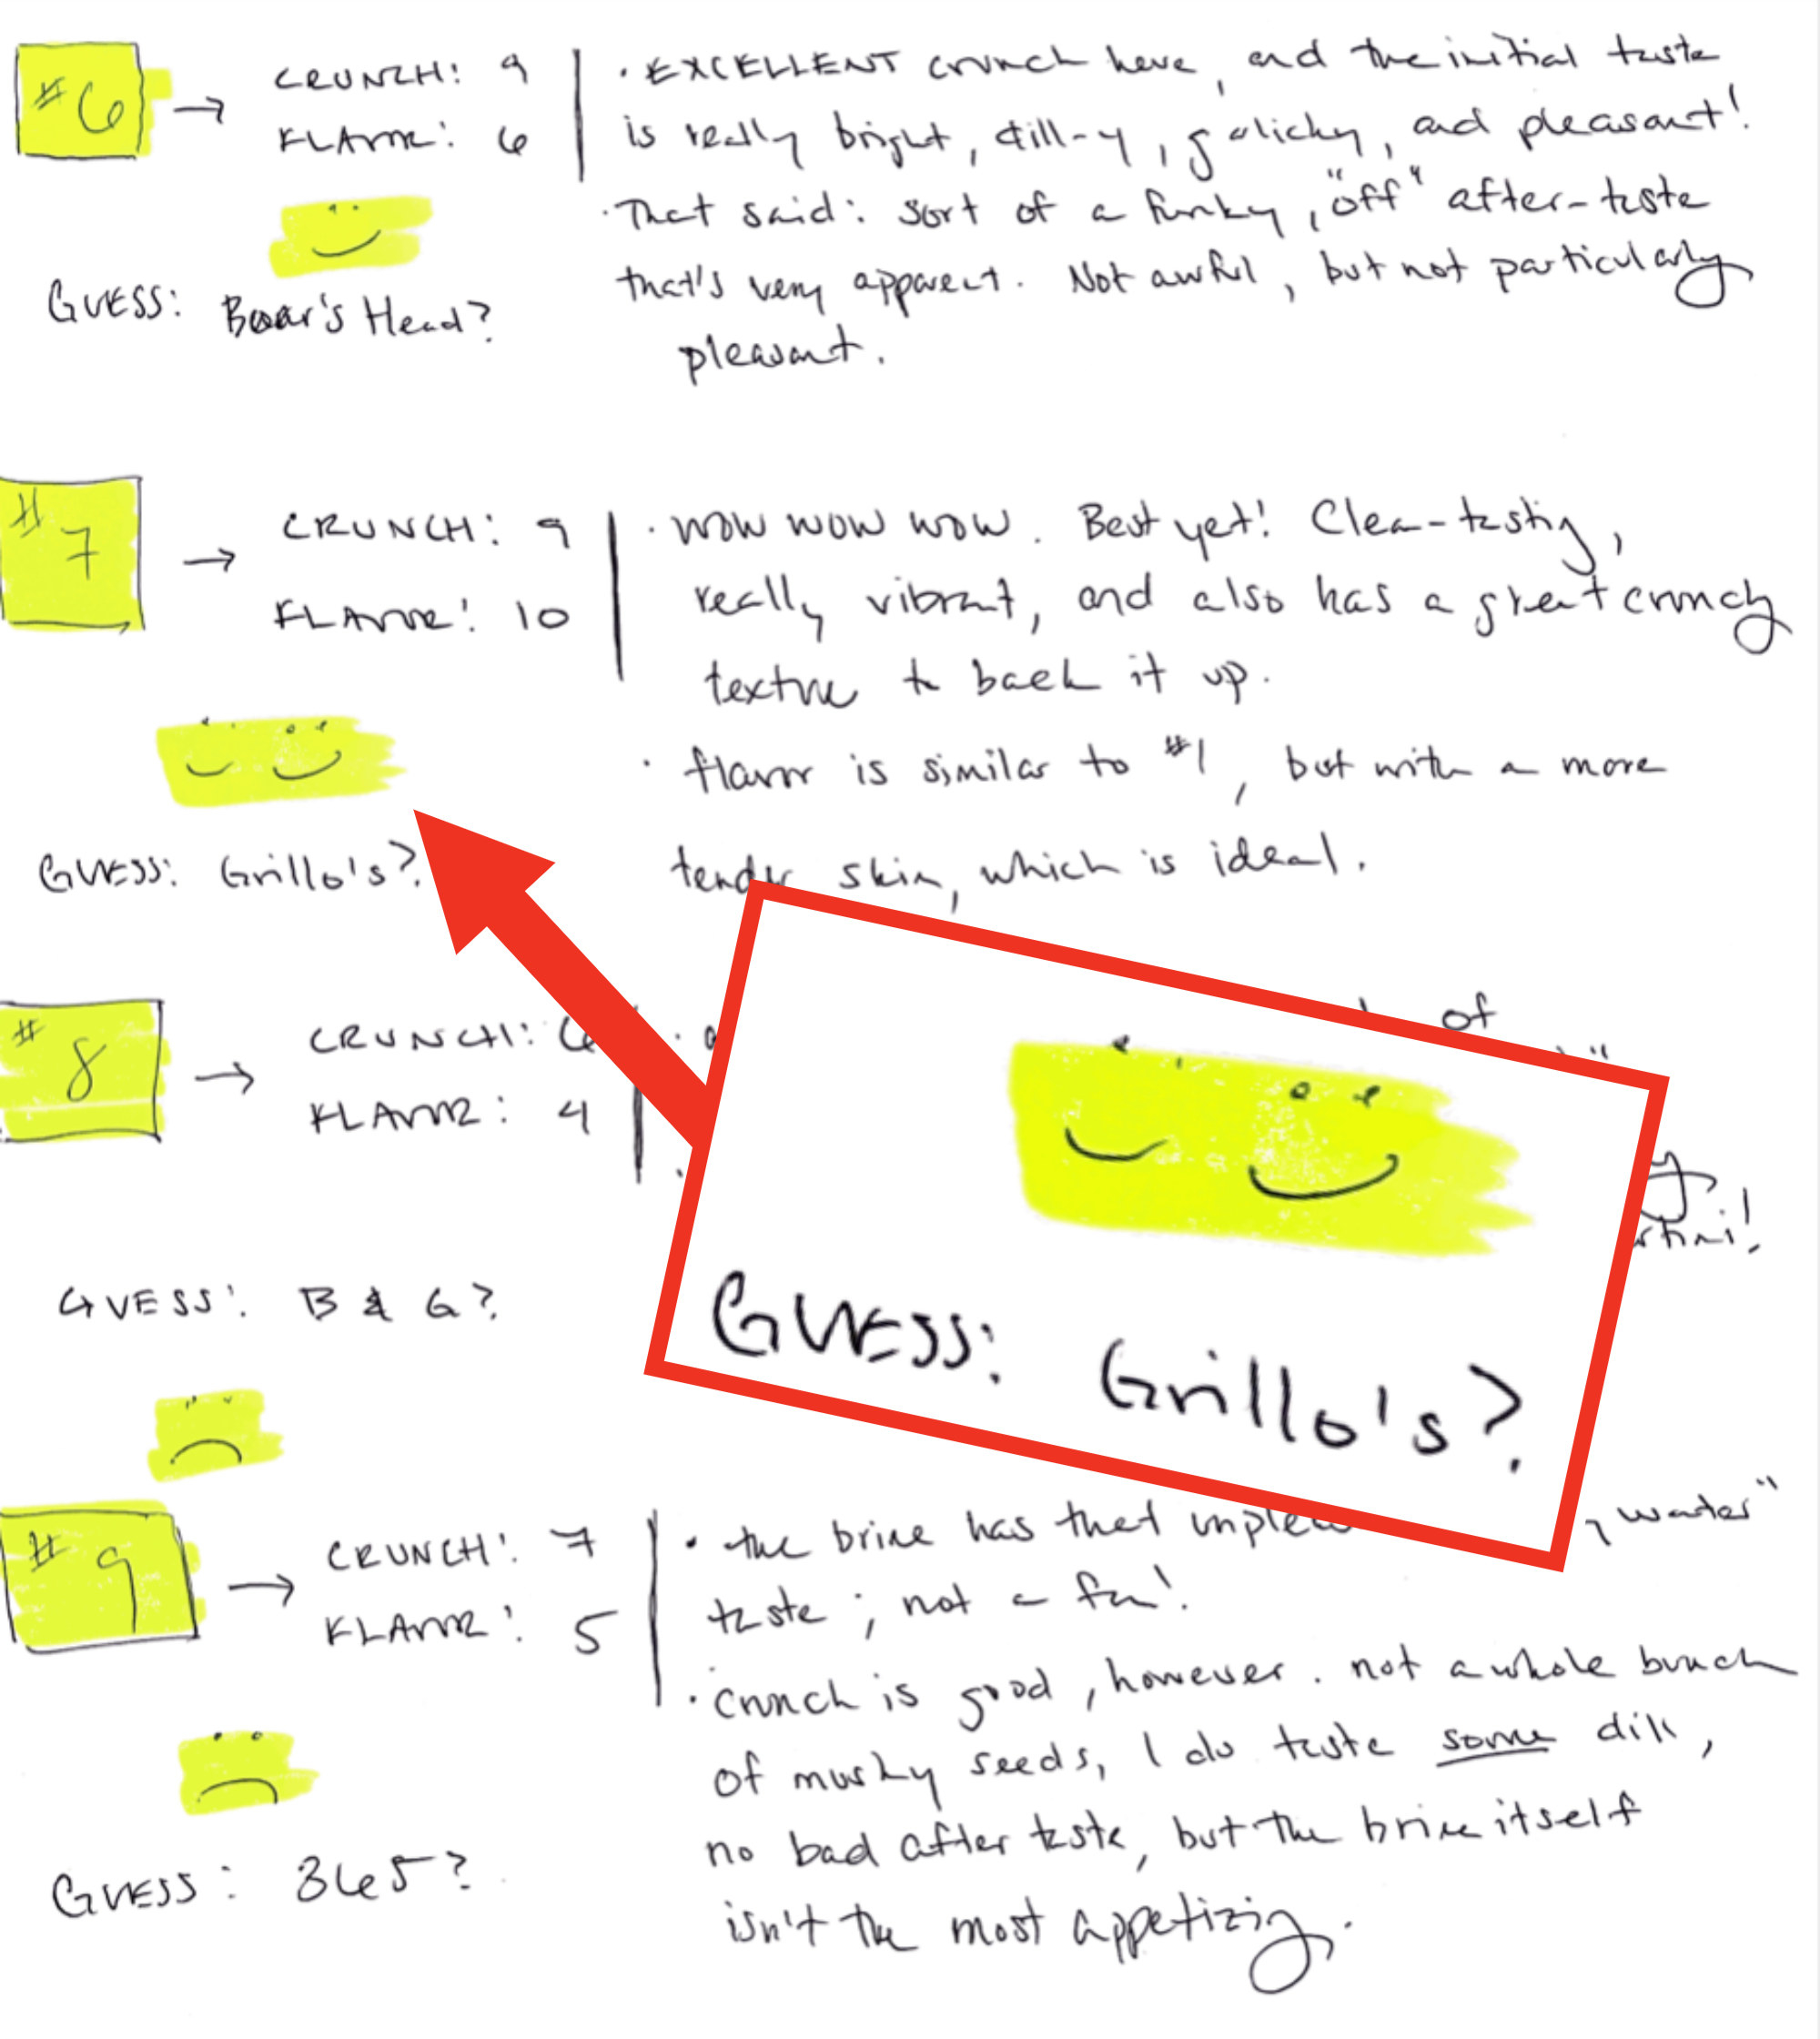 #6 → CRUNCH: 9 · EXCELLENT crunch here, and the initial taste
FLAVOR: 6 is really bright, dill-y, galicky, and pleasant!
· That said: sort of a funky, "off" after-taste
that's very apparent. Not awful, but not particularly
GUESS: Boar's Head?
pleasant.
#7 → CRUNCH: 9 · WOW WOW WOW. Best yet! Clean-tasting,
FLAVOR: 10 really vibrant, and also has a great crunchy
texture to back it up.
· flavor is similar to #1, but with a more
GUESS: Grillo's? tender skin, which is ideal.
#8 → CRUNCH: 6 of
FLAVOR: 4
GUESS: B & G?
GUESS: Grillo's?
#9 → CRUNCH: 7 · the brine has that water"
FLAVOR: 5 taste; not a fan!
· crunch is good, however. not a whole bunch
of mushy seeds, I do taste some dill,
no bad after taste, but the brine itself
GUESS: 365?
isn't the most appetizing.